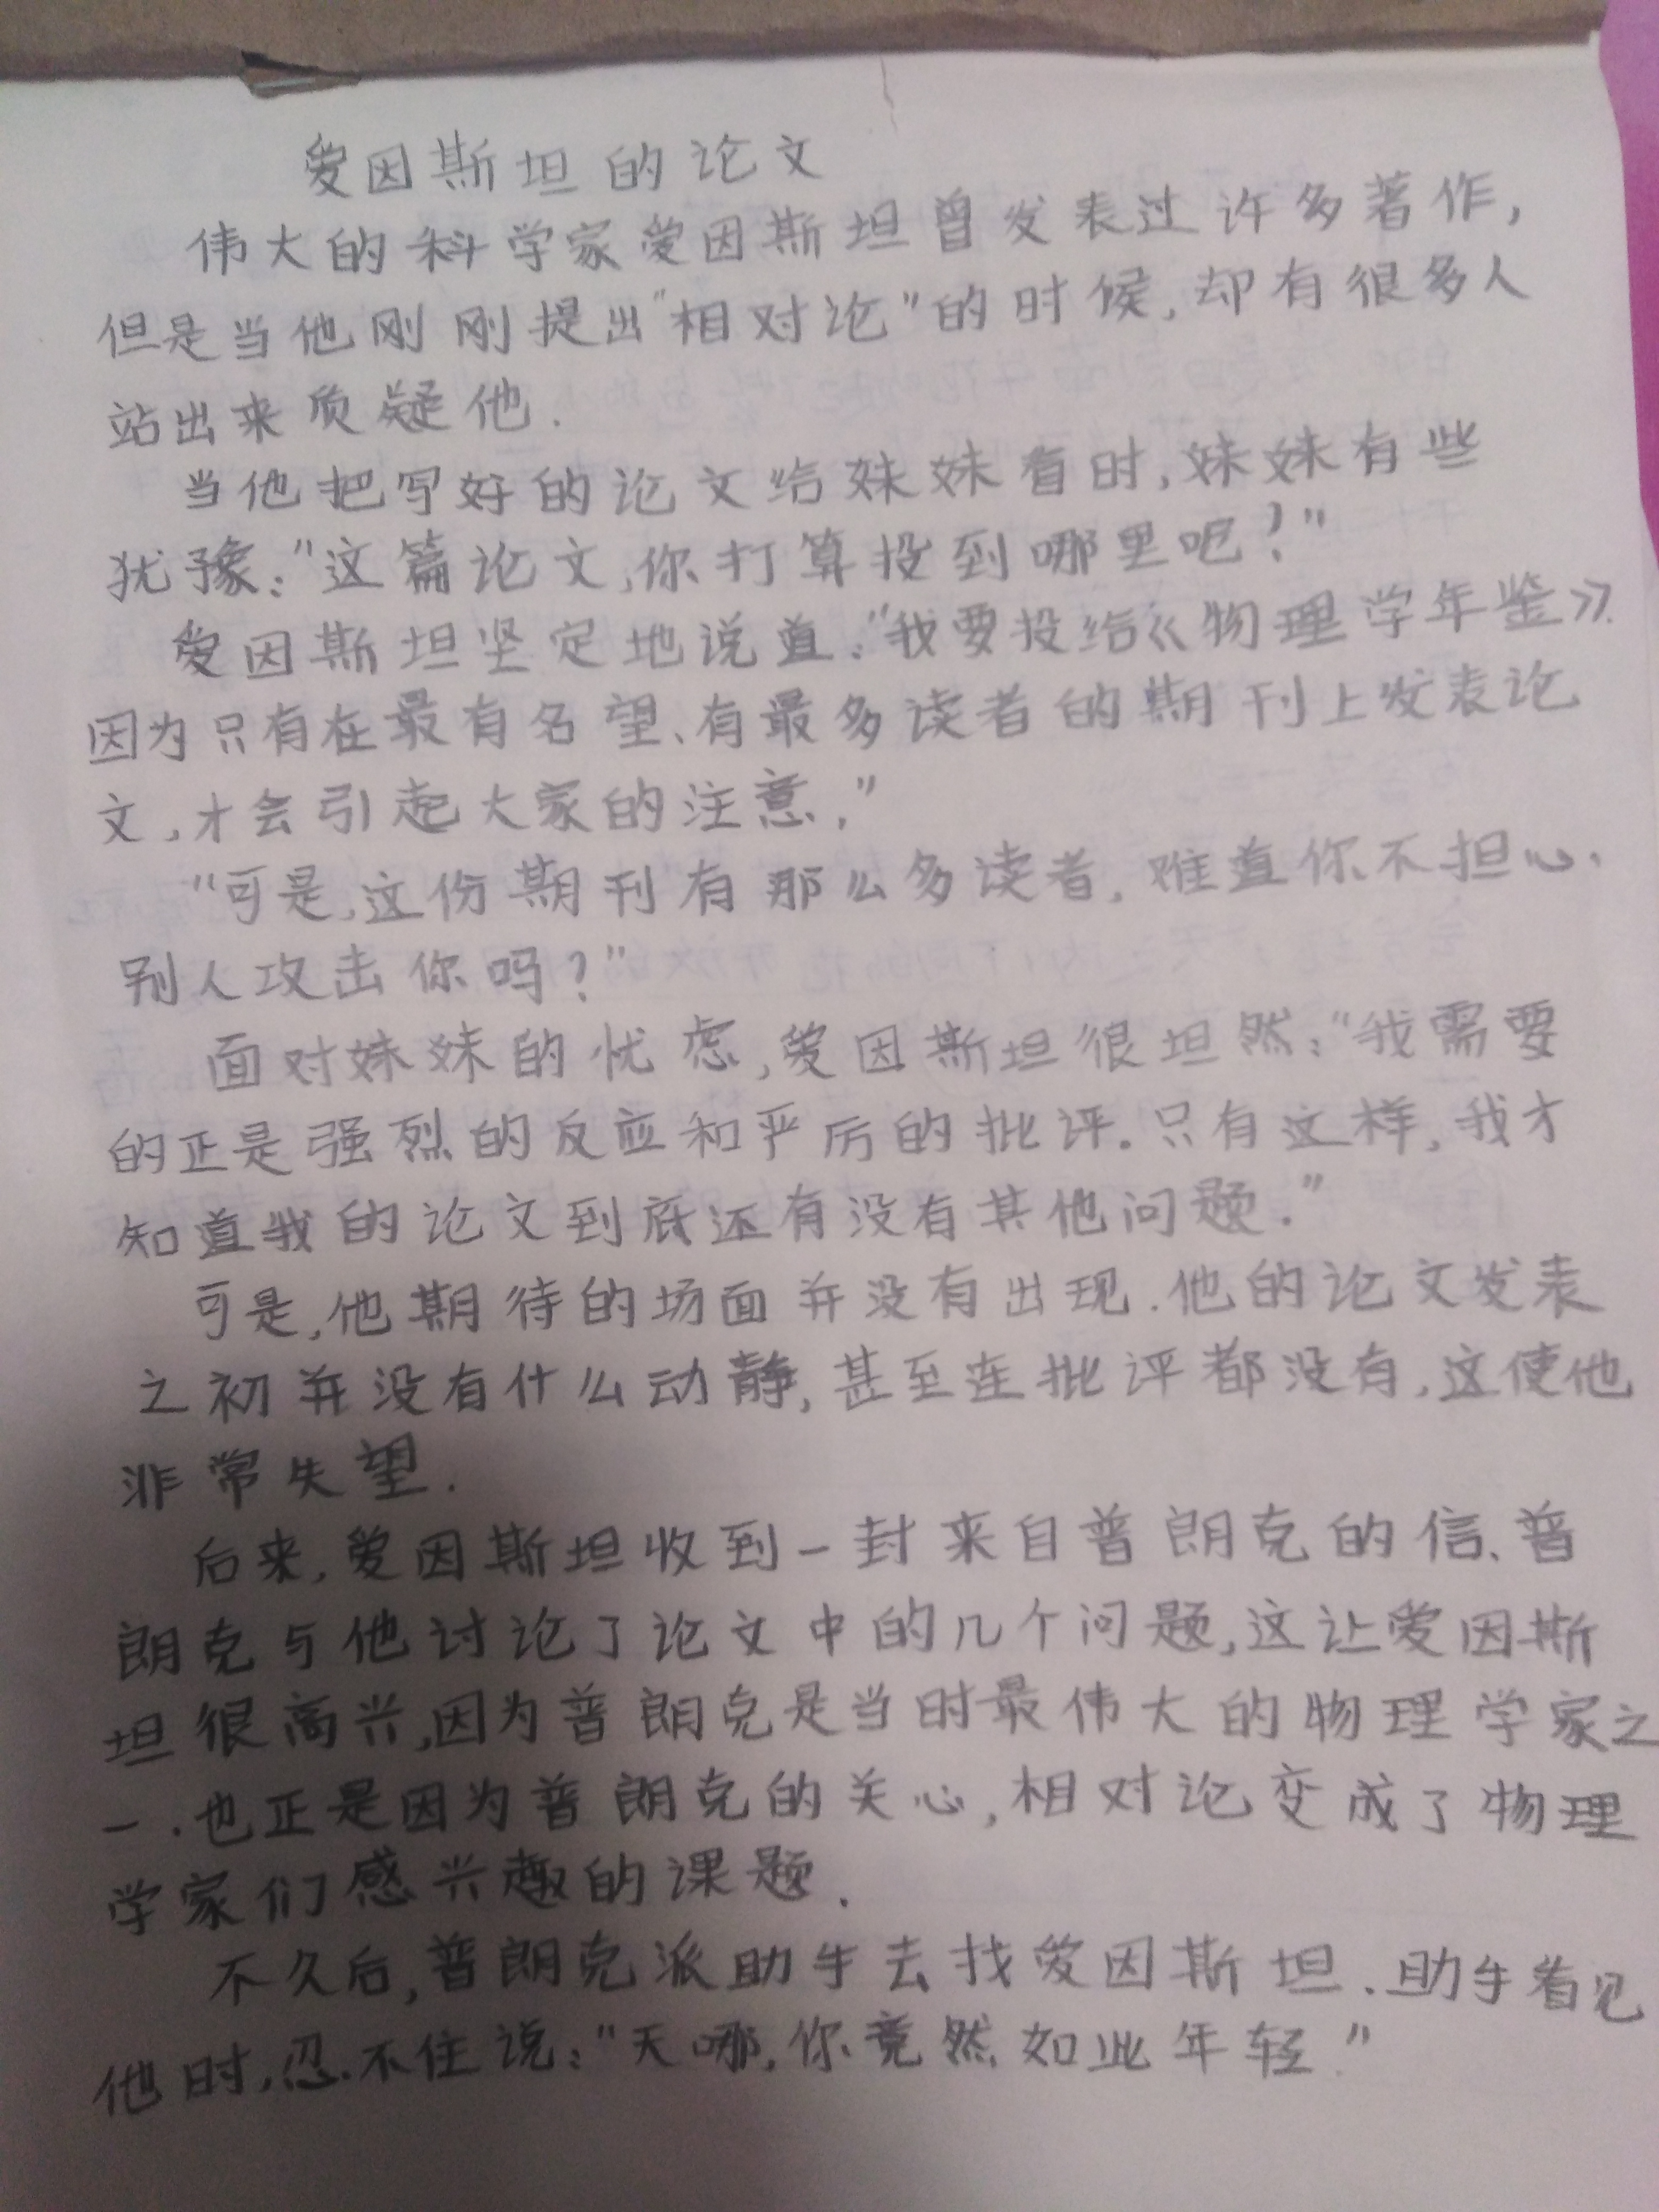 爱因斯坦的论文
伟大的科学家爱因斯坦曾发表过许多著作,
但是当他刚刚提出"相对论"的时候,却有很多人
站出来质疑他.
当他把写好的论文给妹妹看时,妹妹有些
犹豫:"这篇论文,你打算投到哪里呢?"
爱因斯坦坚定地说道:"我要投给《物理学年鉴》.
因为只有在最有名望、有最多读者的期刊上发表论
文,才会引起大家的注意."
"可是,这份期刊有那么多读者,难道你不担心.
别人攻击你吗?"
面对妹妹的忧虑,爱因斯坦很坦然:"我需要
的正是强烈的反应和严厉的批评。只有这样,我才
知道我的论文到底还有没有其他问题."
可是,他期待的场面并没有出现.他的论文发表
之初并没有什么动静,甚至连批评都没有,这使他
非常失望.
后来,爱因斯坦收到一封来自普朗克的信、普
朗克与他讨论了论文中的几个问题,这让爱因斯
坦很高兴,因为普朗克是当时最伟大的物理学家之
一.也正是因为普朗克的关心,相对论变成了物理
学家们感兴趣的课题.
不久后,普朗克派助手去找爱因斯坦.助手看见
他时,忍不住说:"天哪,你竟然如此年轻."